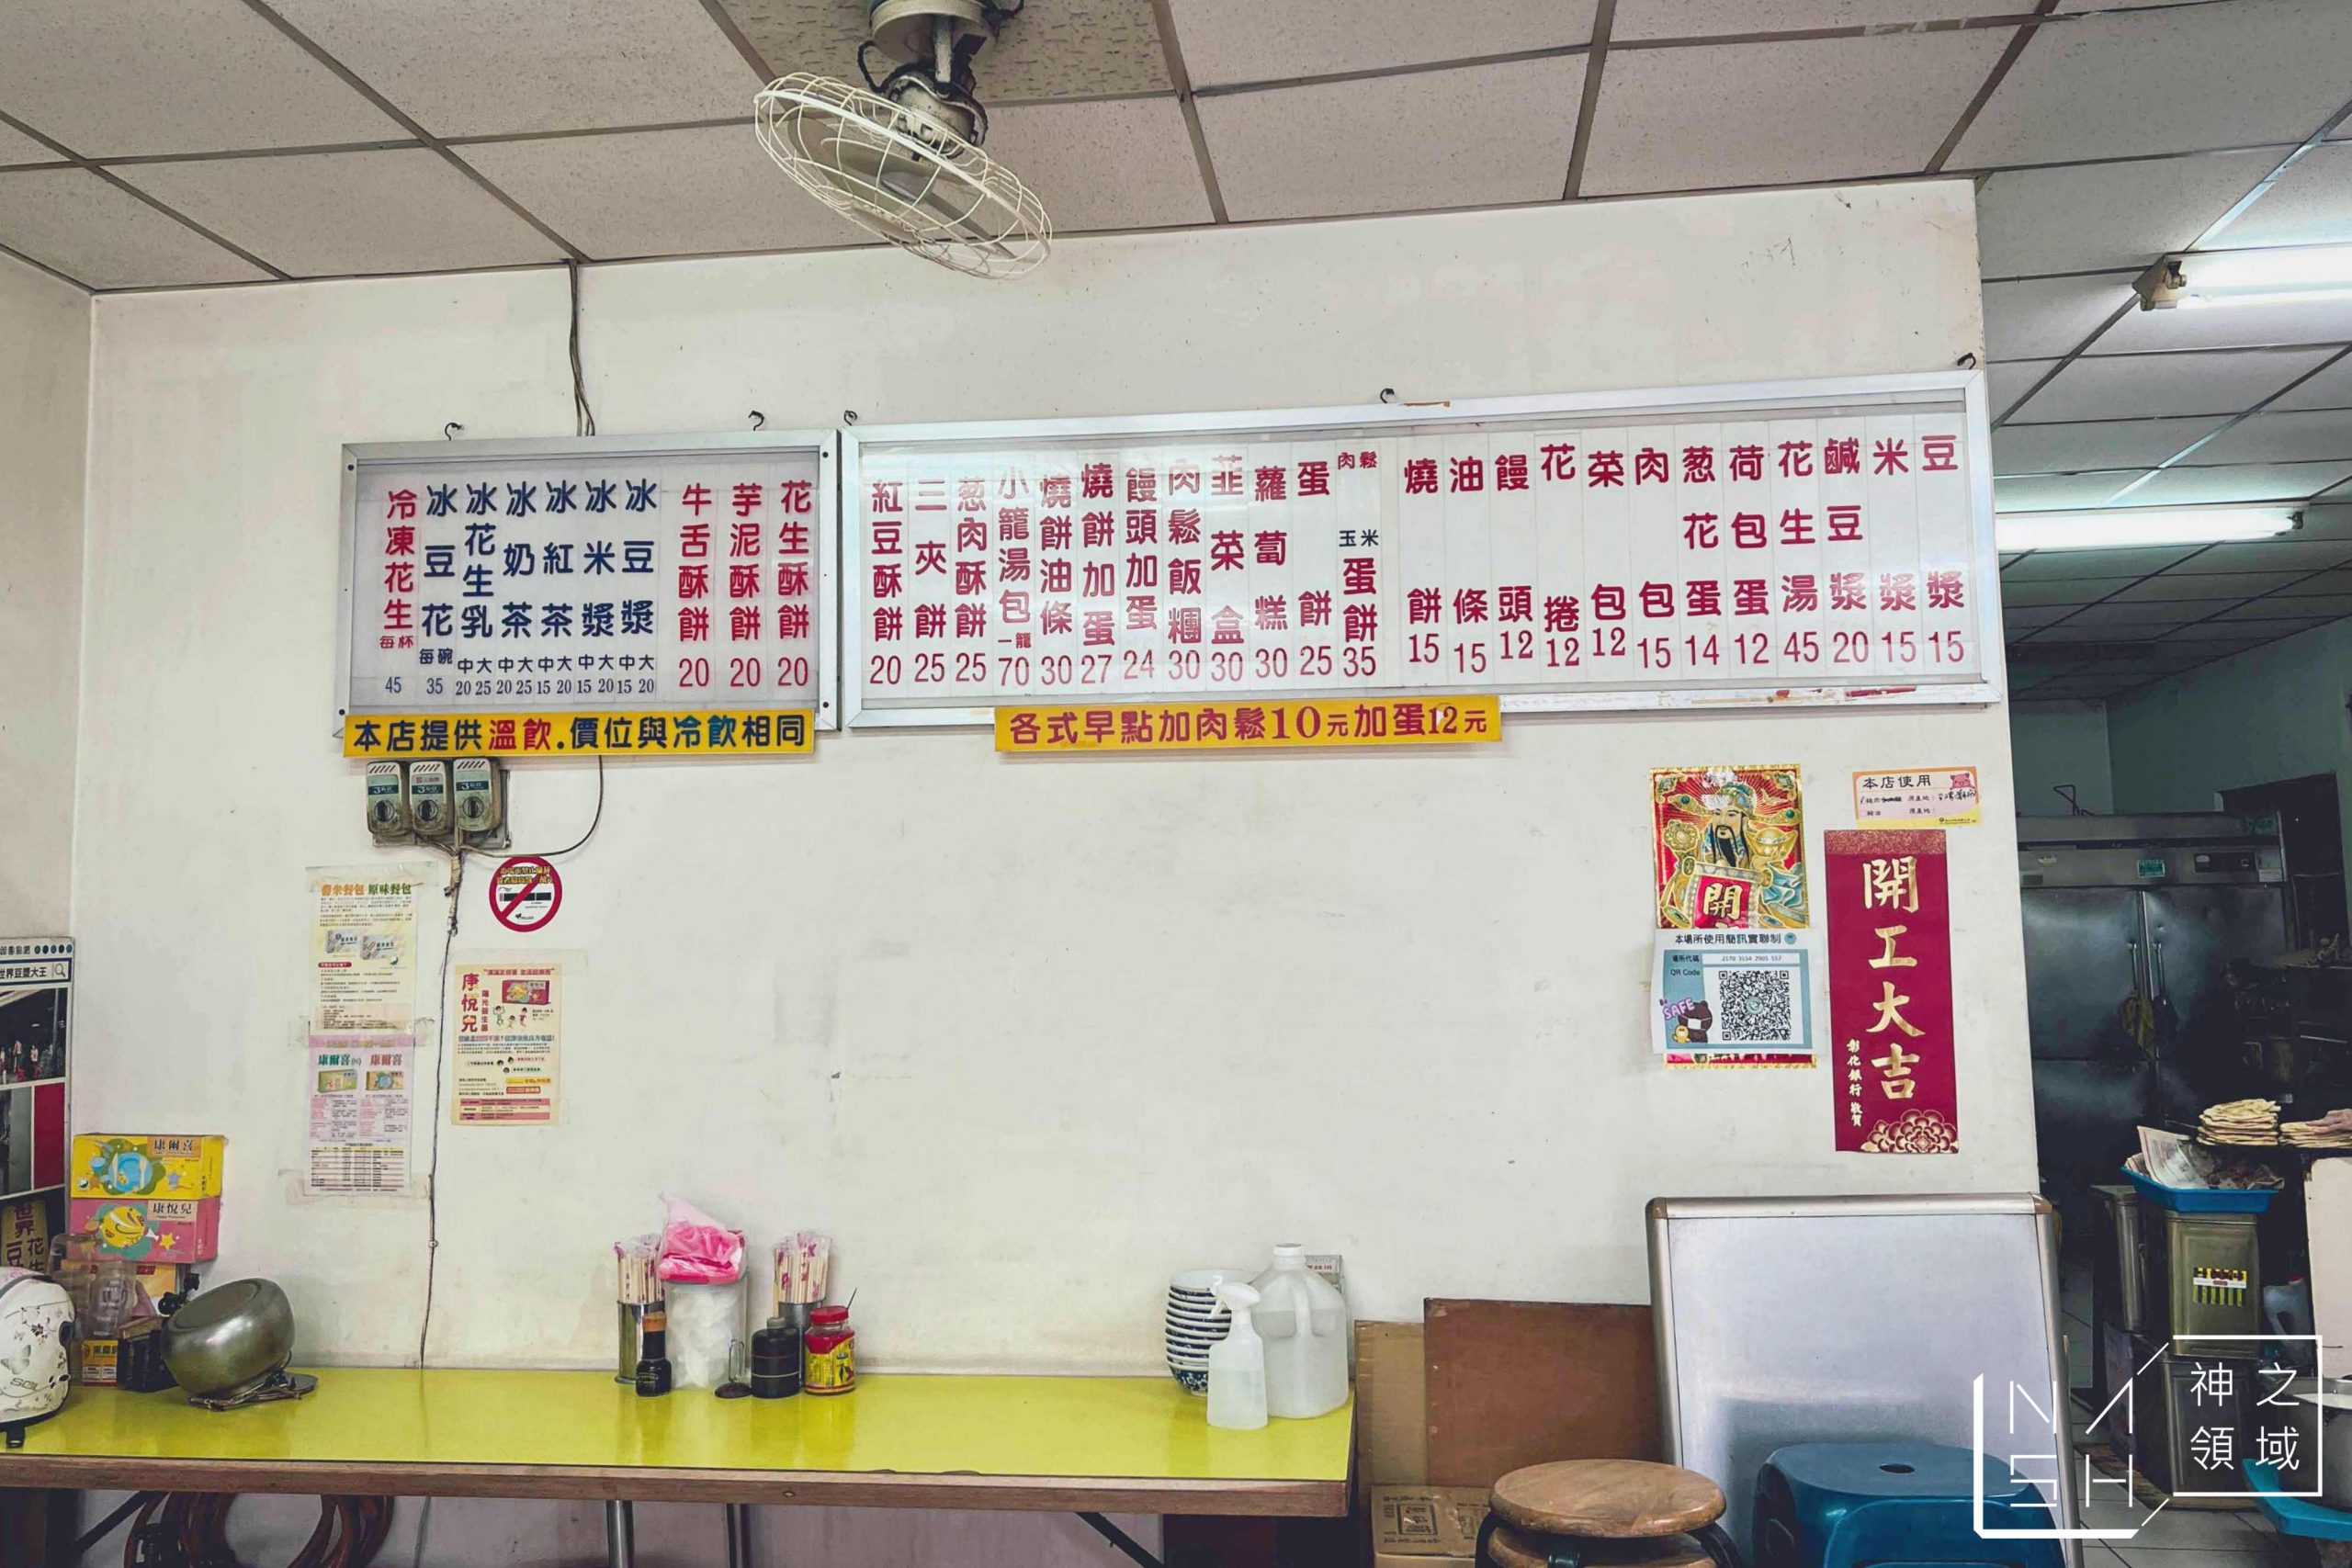 豆漿 15
米漿 15
鹹豆漿 20
花生湯 45
荷包蛋 12
葱花蛋 14
肉包 15
菜包 12
花捲 12
饅頭 12
油條 15
燒餅 15
肉鬆 玉米 蛋餅 35
蛋餅 25
蘿蔔糕 30
韮菜盒 30
肉鬆飯糰 30
饅頭加蛋 24
燒餅加蛋 27
燒餅油條 30
小籠湯包 一籠 70
葱肉酥餅 25
三夾餅 25
紅豆酥餅 20
各式早點加肉鬆10元加蛋12元
花生酥餅 20
芋泥酥餅 20
牛舌酥餅 20
冰豆漿 中 15 大 20
冰米漿 中 15 大 20
冰紅茶 中 15 大 20
冰奶茶 中 20 大 25
冰花生乳 中 20 大 25
冰豆花 每碗 35
冷凍花生 每杯 45
本店提供溫飲.價位與冷飲相同
本店使用
開
本場所使用簡訊實聯制
場所代碼
2170 3154 2905 557
QR Code
SAFE
開工大吉
彰化銀行 敬賀
原味餐包
康爾喜
康爾喜
康悅兒
世界豆漿大王
康爾喜
康悅兒
NASH
神之領域